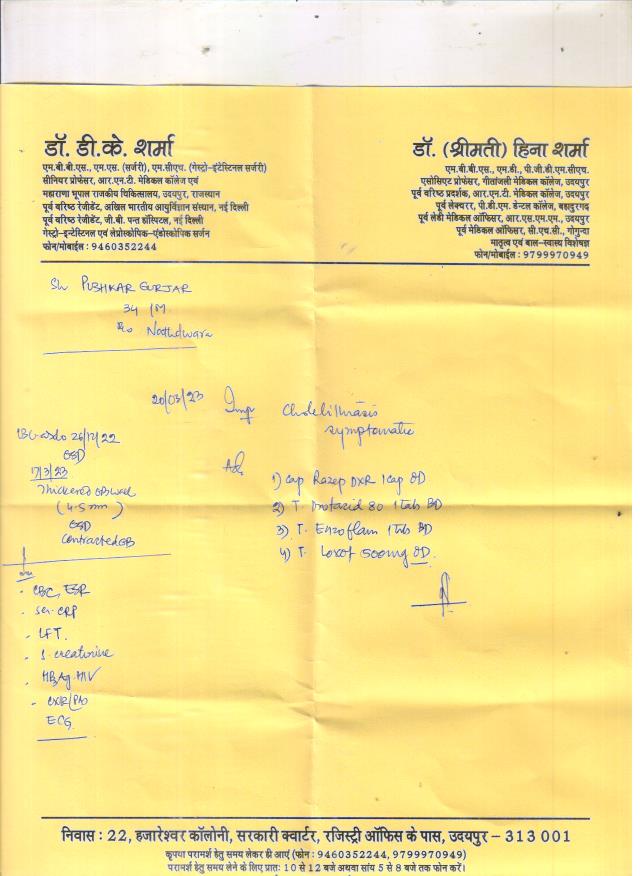 डॉ. डी.के. शर्मा
एम.बी.बी.एस., एम.एस. (सर्जरी), एम.सीएच. (गेस्ट्रो-इंटेस्टिनल सर्जरी)
सीनियर प्रोफेसर, आर.एन.टी. मेडिकल कॉलेज एवं
महाराणा भूपाल राजकीय चिकित्सालय, उदयपुर, राजस्थान
पूर्व वरिष्ठ रेजीडेंट, अखिल भारतीय आयुर्विज्ञान संस्थान, नई दिल्ली
पूर्व वरिष्ठ रेजीडेंट, जी.बी. पन्त हॉस्पिटल, नई दिल्ली
गेस्ट्रो-इन्टेस्टिनल एवं लेप्रोस्कोपिक-एंडोस्कोपिक सर्जन
फोन/मोबाईल : 9460352244
डॉ. (श्रीमती) हिना शर्मा
एम.बी.बी.एस., एम.डी., पी.जी.डी.एम.सीएच.
एसोसिएट प्रोफेसर, गीतांजली मेडिकल कॉलेज, उदयपुर
पूर्व वरिष्ठ प्रदर्शक, आर.एन.टी. मेडिकल कॉलेज, उदयपुर
पूर्व लेक्चरर, पी.डी.एम. डेन्टल कॉलेज, बहादुरगढ़
पूर्व लेडी मेडिकल ऑफिसर, आर.एस.एम.एम., उदयपुर
पूर्व मेडिकल ऑफिसर, सी.एच.सी., गोगुन्दा
मातृत्व एवं बाल-स्वास्थ्य विशेषज्ञ
फोन/मोबाईल : 9799970949
Sh PUSHKAR GURJAR
34 /M
R/o Nathdwara
20/03/23
Imp Cholelithiasis
symptomatic
26/12/22
GSD
17/3/23
Thickened GB wall
(4.5mm)
GSD
Contracted GB
Adv
1) Cap Razep DXR 1cap OD
2) T. 80 1tab BD
3) T. Enzoflam 1tab BD
4) T. Loxof 500mg OD.
- CBC, ESR
- Ser. CRP
- LFT.
- S. creatinine
- HBsAg. HIV
- CXR/PA
ECG
निवास : 22, हजारेश्वर कॉलोनी, सरकारी क्वार्टर, रजिस्ट्री ऑफिस के पास, उदयपुर – 313 001
कृपया परामर्श हेतु समय लेकर ही आएं (फोन : 9460352244, 9799970949)
परामर्श हेतु समय लेने के लिए प्रातः 10 से 12 बजे अथवा सांय 5 से 8 बजे तक फोन करें।